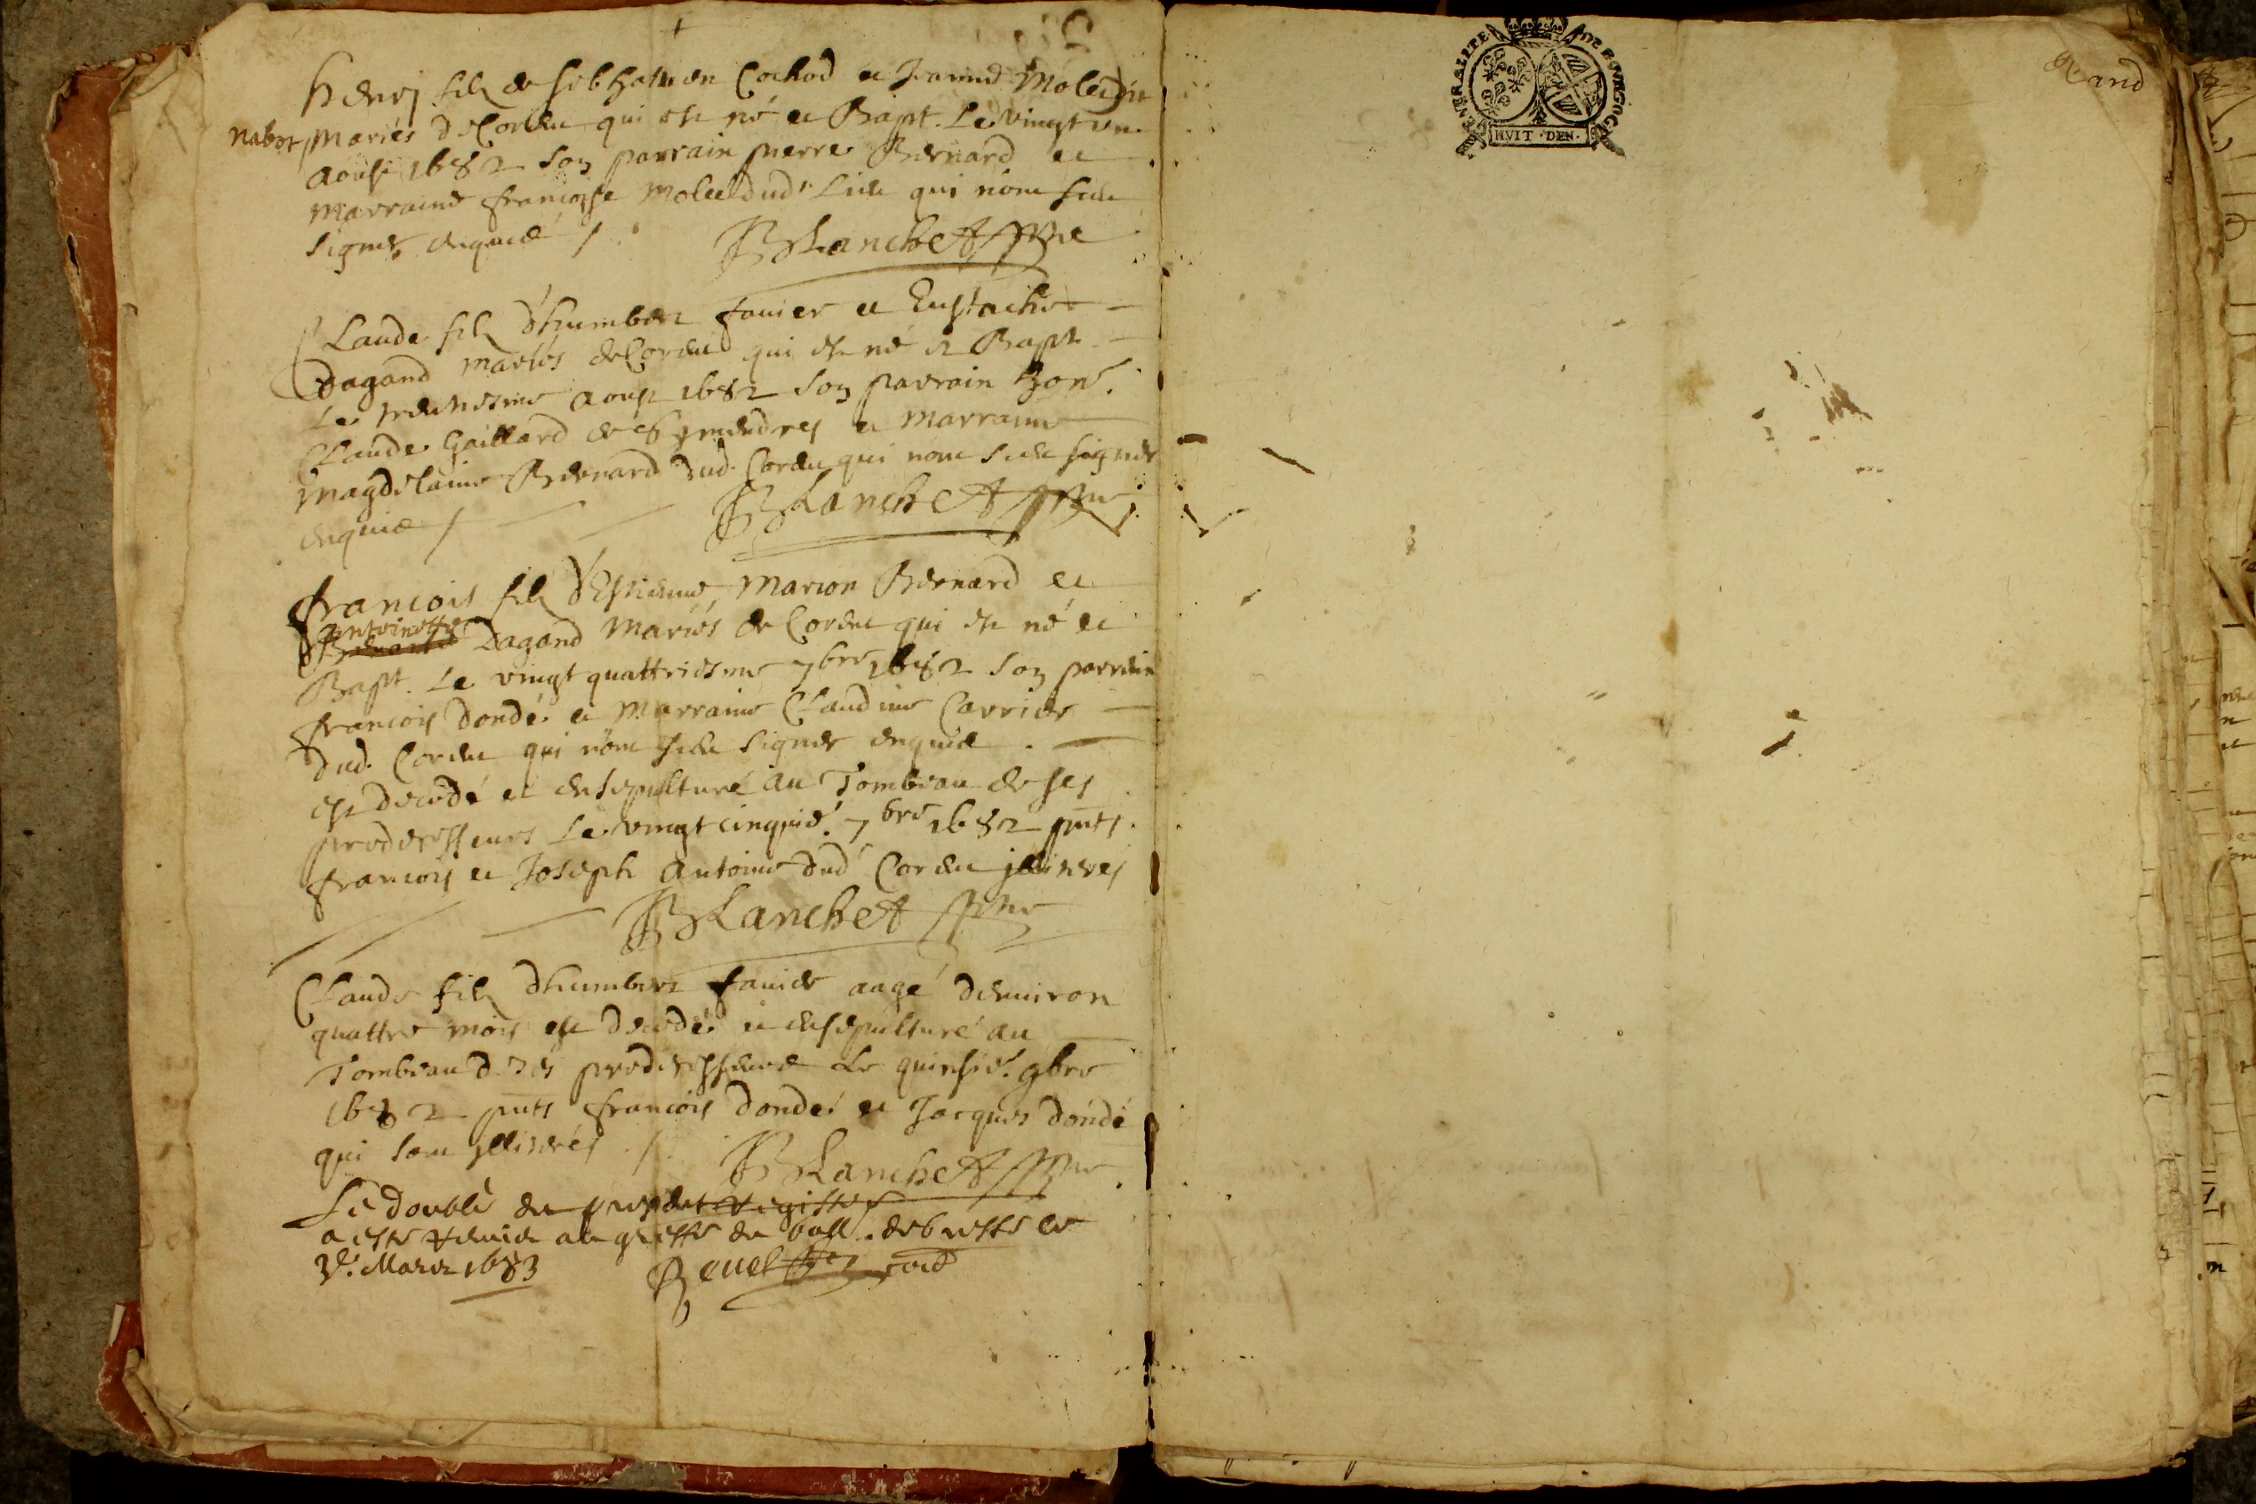 henrj filz de sebhatien Cochod et Jeanne Molet
nabot
Mariés de Corden qui est né et Bapt. Le vingt un
aoust 1682 son parrain pierre Bernard et
Marraine francoise Molet dud. Lieu qui nont sceu
signer enquis /.
BLancheA
CLaude filz d'humbert fauier et Eustachie
Dagand mariés de Corden qui est né et Bapt.
Le aoust 1682 son parrain hon.
CLaude Gaillard de et Marraine
Magdelaine Bernard dud. Corden qui nont sceu signer
enquis /
BLancheA
francois filz d'Estienne Marion Bernard et
Antoinette Dagand Mariés de Corden qui est né et
Bapt. Le vingt quattriesme 7bre 1682 son parrain
francois dondé et Marraine CLaudine Carrier
dud. Corden qui nont sceu signer enquis.
est decedé et ensepulturé au Tombeau de ses
predecesseurs Le vingt cinquié. 7bre 1682 pnts
francois et Joseph Antoine dud. Corden illitrés
BLancheA
CLaude filz dhumbert fauier aagé denuiron
quattre mois est decedé et ensepulturé au
Tombeau de ses predecesseurs Le quinsié. 9bre
1682 pnts francois dondé et Jacques dondé
qui sont illitrés /.
BLancheA
Le double du present registre
a esté remis au greffe du ball. de bresse le
3e. Mars 1683
Reuel
GENERALITE DE BOVRGOG
HVIT·DEN·